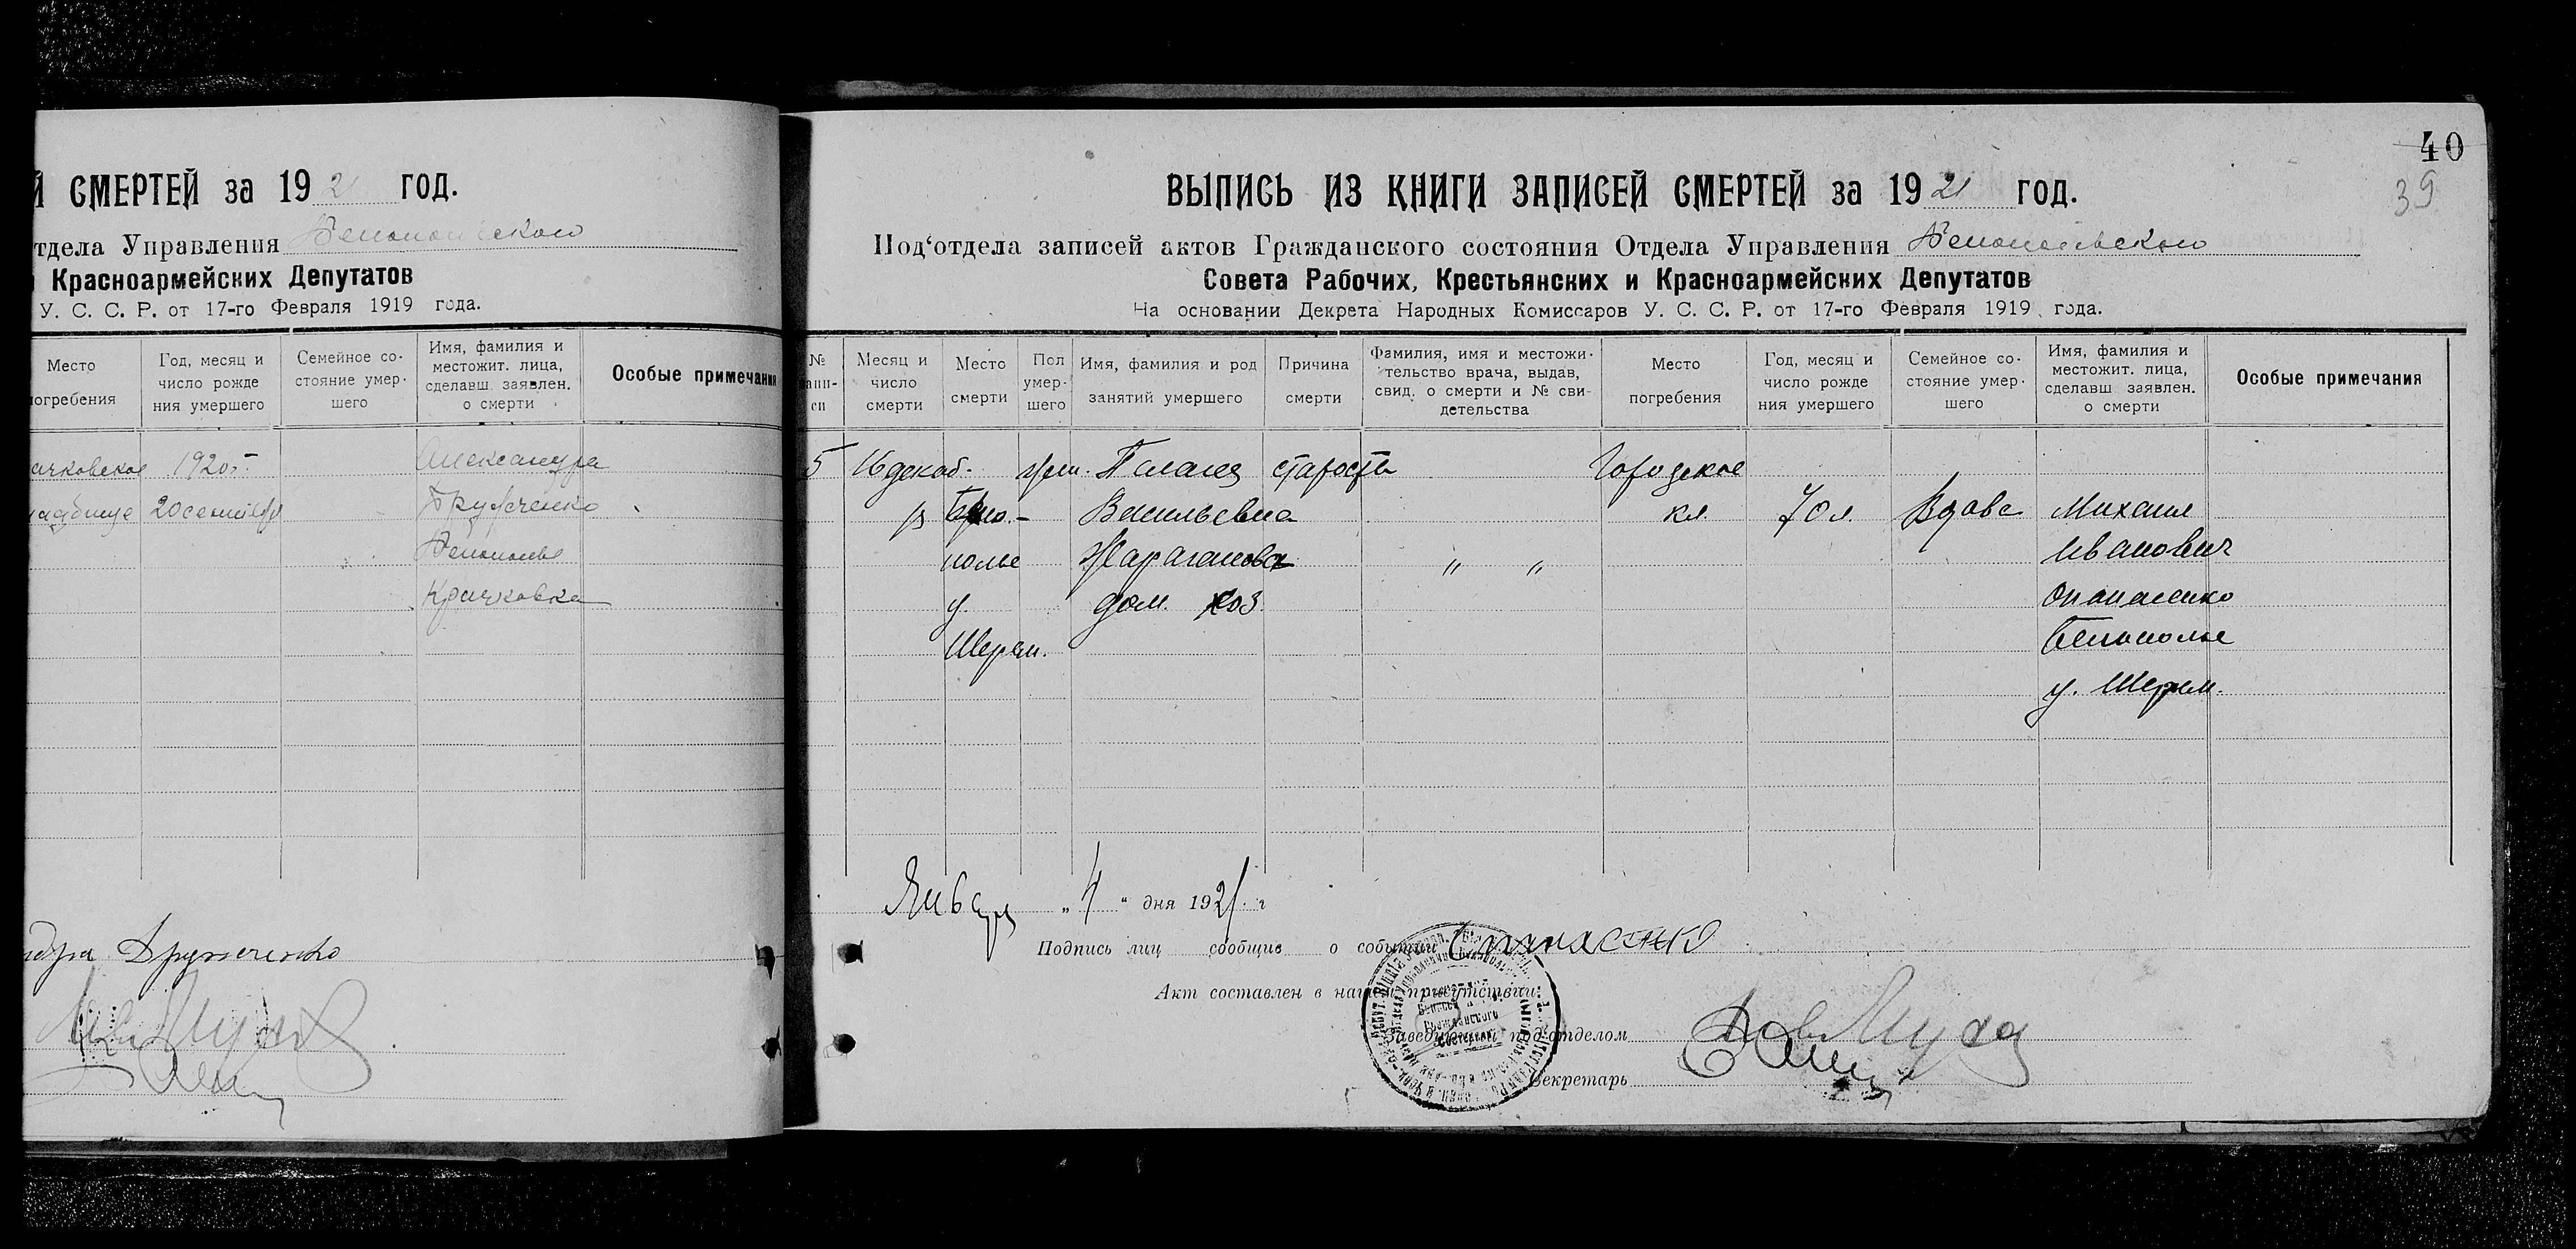 Й СМЕРТЕЙ за 1921 год.
тдела Управления Белопольского
Красноармейских Депутатов
У. С. С. Р. от 17-го Февраля 1919 года.
Место погребения
Год, месяц и число рожде ния умершего
Семейное со- стояние умер- шего
Имя, фамилия и местожит. лица, сделавш. заявлен. о смерти
Особые примечания
ачковское 1920 г. Александра
ладбище 20 сентября Дружченко
Белополье
Крачковка
ндра Дружченко
40
39
ВЫПИСЬ ИЗ КНИГИ ЗАПИСЕЙ СМЕРТЕЙ за 1921 год.
Под‘отдела записей актов Гражданского состояния Отдела Управления Белопольского
Совета Рабочих, Крестьянских и Красноармейских Депутатов
На основании Декрета Народных Комиссаров У. С. С. Р. от 17-го Февраля 1919 года.
№ запи- си
Месяц и число смерти
Место смерти
Пол умер- шего
Имя, фамилия и род занятий умершего
Причина смерти
Фамилия, имя и местожи- тельство врача, выдав, свид. о смерти и № сви- детельства
Место погребения
Год, месяц и число рожде ния умершего
Семейное со- стояние умер- шего
Имя, фамилия и местожит. лица, сделавш заявлен. о смерти
Особые примечания
5 16 декаб- жен. Палагея старость Городское
я Бело- Васильевна кл 70 л. Вдова Михаил
полье Жараганова " " Иванович
у. дом. хоз. Опанасенко
Шерем. Белополье
у. Шерем.
Января „4“ дня 1921 г
Подпись лиц сообщив о событии Опанасенко
Акт составлен в нашем присутствии:
Заведующий под‘отделом
Секретарь